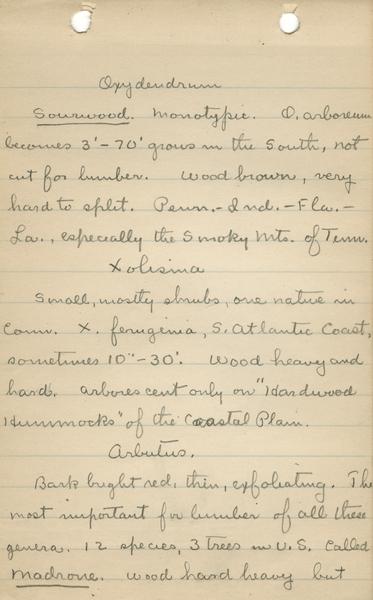 Oxydendrum
Sourwood. Monotypic. O. arboreum
becomes 3'-70' grows in the South, not
cut for lumber. Wood brown, very
hard to split. Penn.-Ind.-Fla.-
La., especially the Smoky Mts. of Tenn.
Xolisma
Small, mostly shrubs, one native in
Conn. X. feruginia, S. Atlantic Coast,
sometimes 10"-30'. Wood heavy and
hard. arborescent only on "Hardwood
Hummocks" of the Coastal Plain.
Arbutus.
Bark bright red, thin, exfoliating. The
most important for lumber of all these
genera. 12 species, 3 trees in U.S. Called
Madrone. Wood hard heavy but